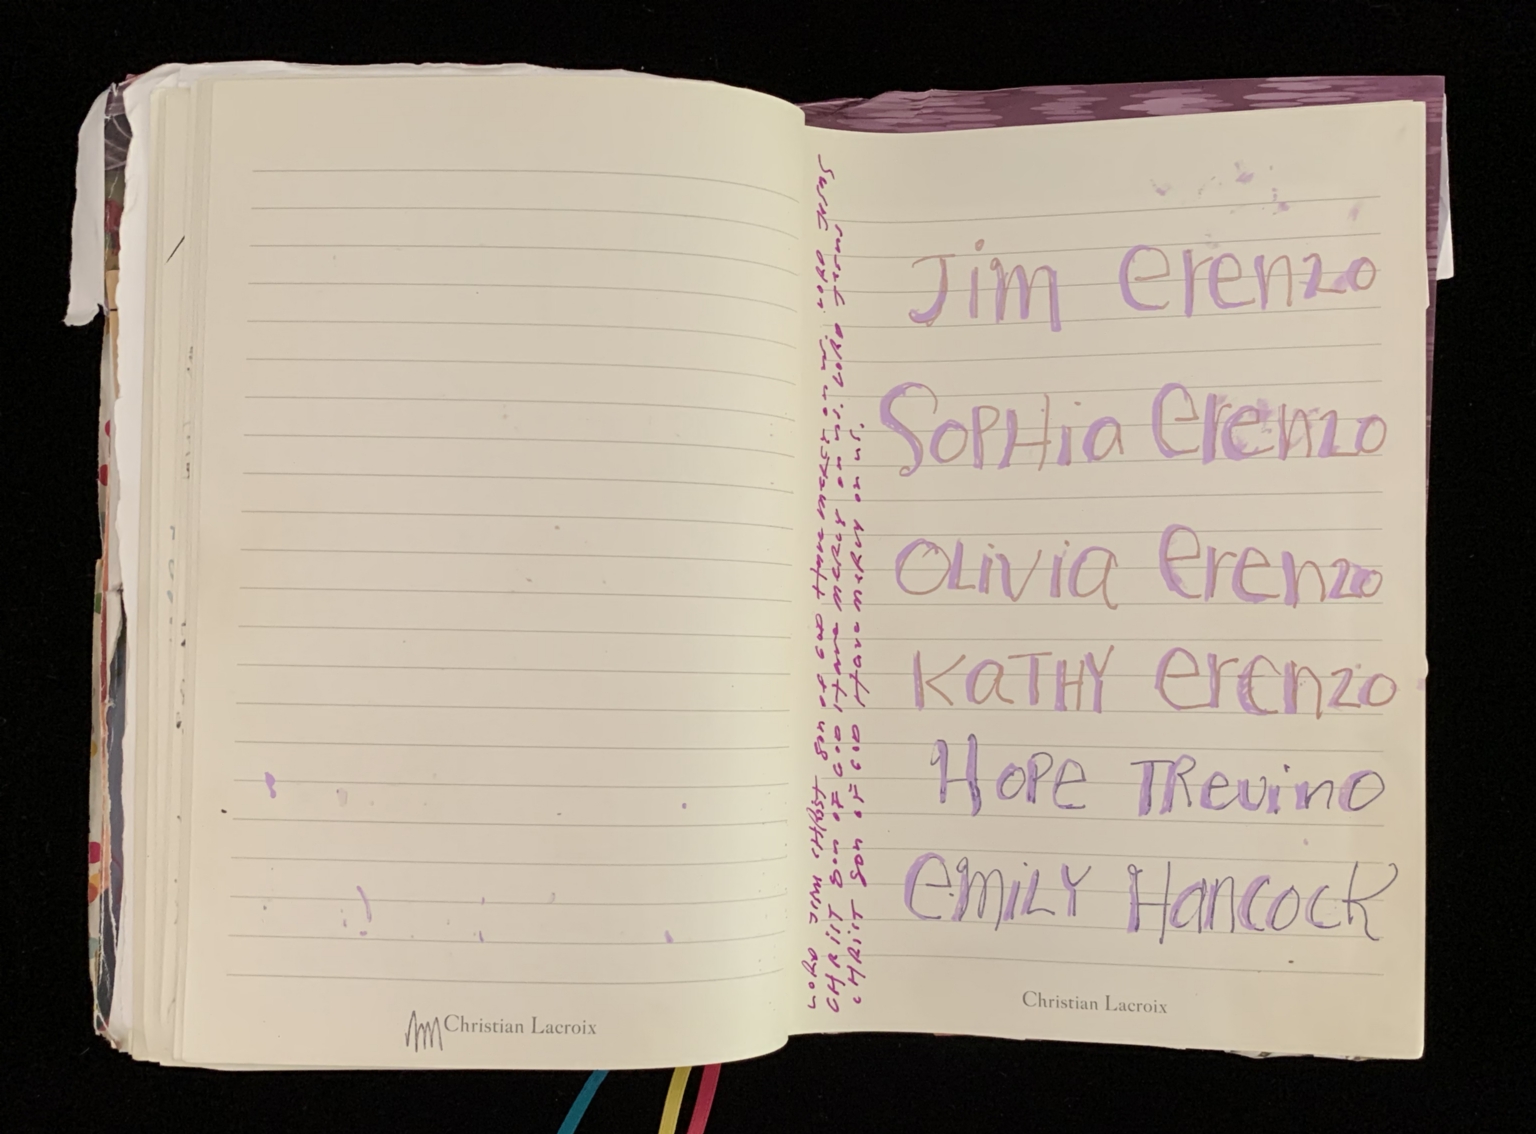 LORD Jesus CHRIST Son OF GOD Have MERCY on us. LORD Jesus
CHRIST Son OF GOD Have MERCY on us. LORD Jesus
CHRIST Son OF GOD Have MERCY on us.
Jim Erenzo
SOPHia Erenzo
OLiVia Erenzo
KaTHY Erenzo
HOPE TRevino
EMiLY Hancock
Christian Lacroix
Christian Lacroix